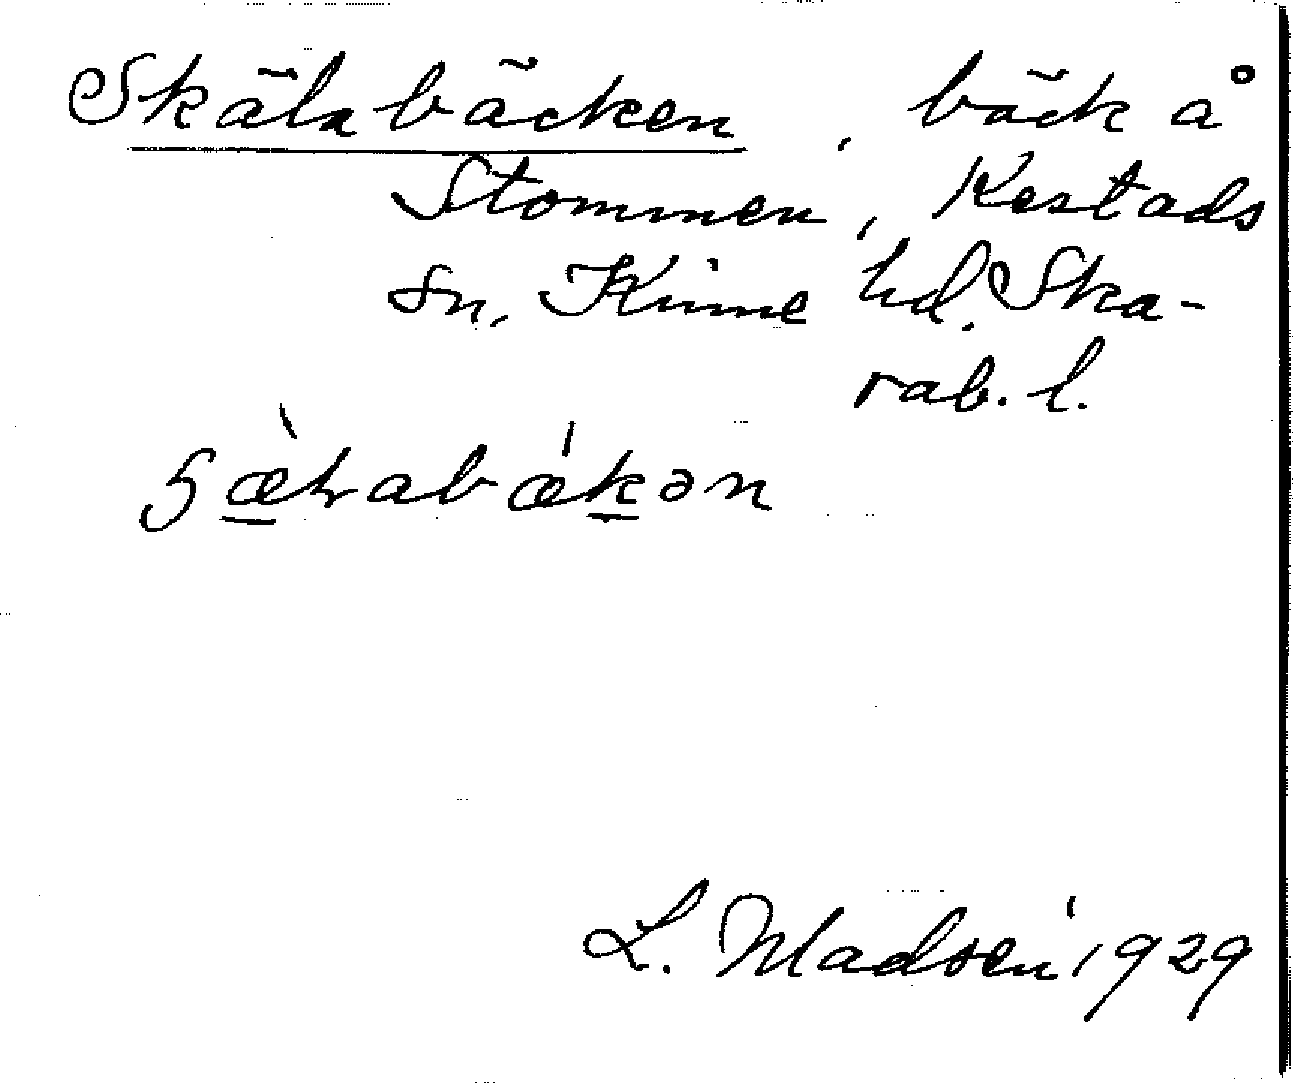 Skälabäcken, bäck å
Stommen, Kestads
sn, Kinne hd. Ska-
rab. l.
L. Madsén 1929